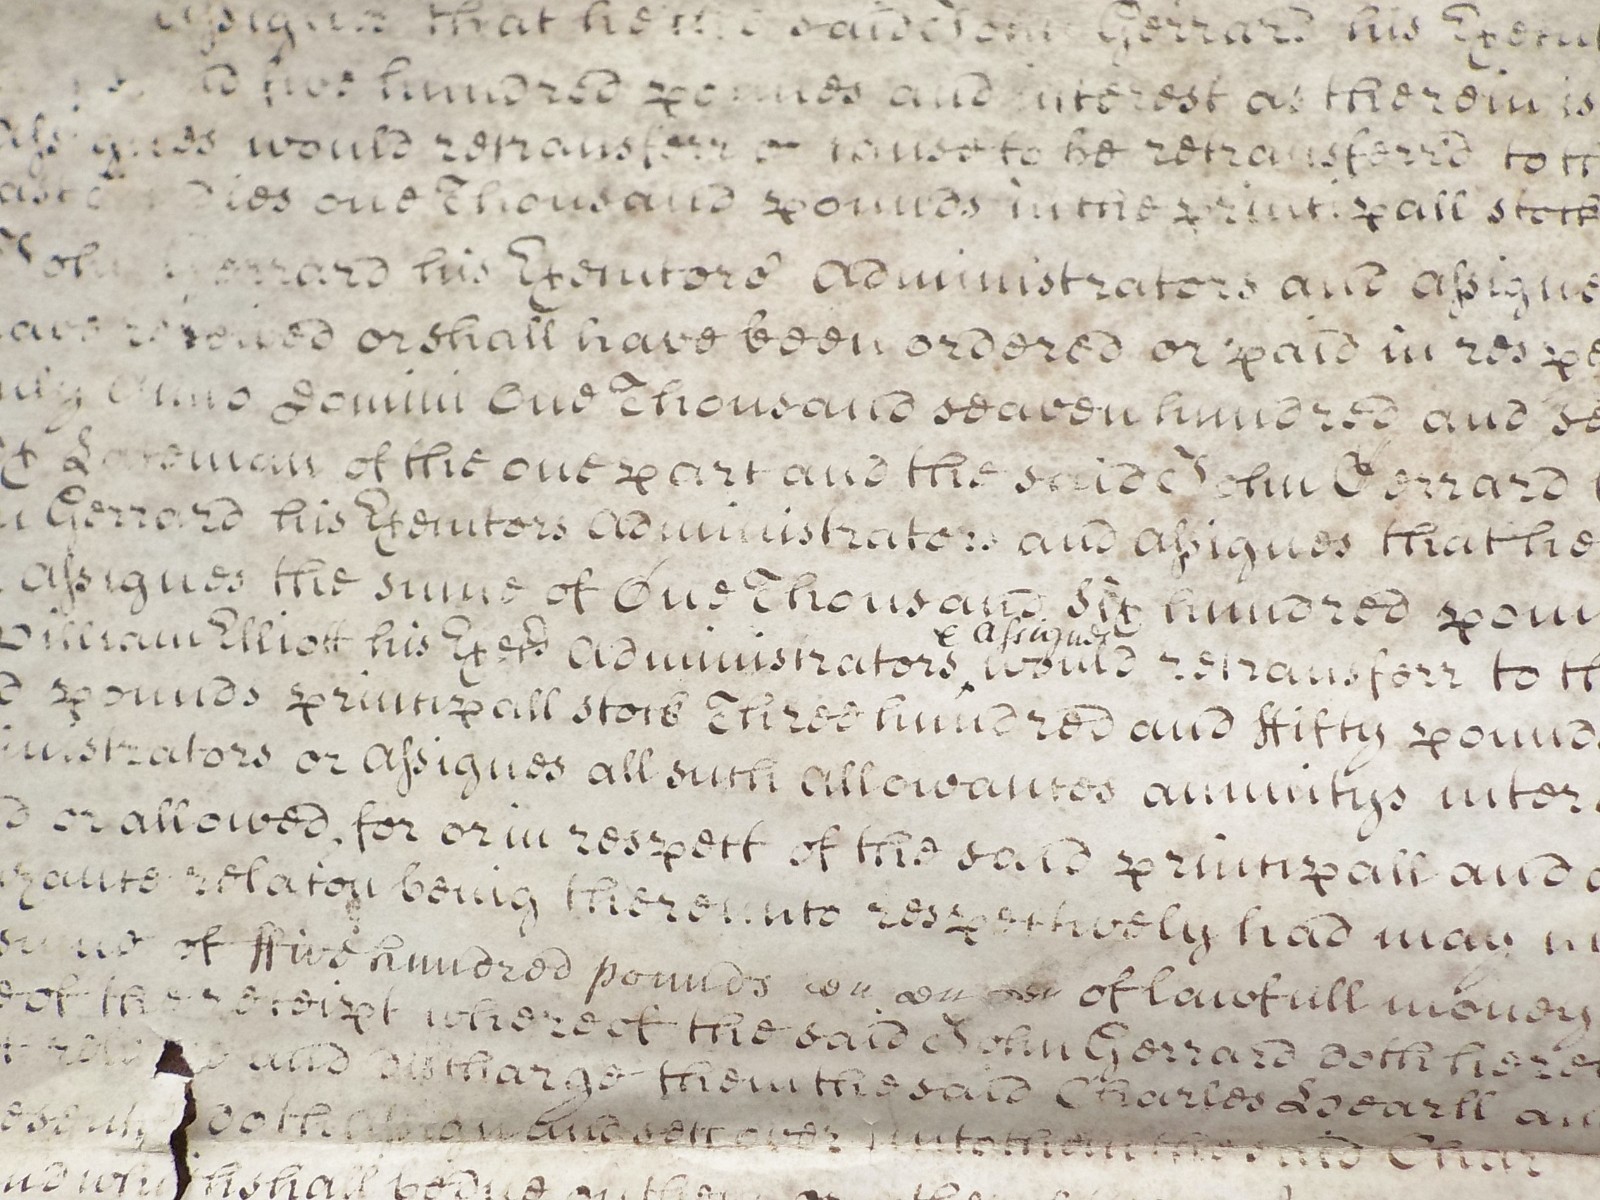 Assignes that he the said John Gerrard his Execut
and five hundred pounds and interest as therein is
Assignes would retransferr or cause to be retransferr'd to th
East Indies one Thousand pounds in the principall stock
John Gerrard his Executors Administrators and Assigne
have received or shall have been ordered or paid in respe
Anno Domini One Thousand seaven hundred and se
of the one part and the said John Gerrard
Gerrard his Executors Administrators and Assignes that he
Assignes the sume of One Thousand Six hundred poun
William Elliott his Exers Administrators & Assignes would retransferr to th
pounds principall stock Three hundred and ffifty pounds
inistrators or Assignes all such allowances annuitys inter
or allowed, for or in respect of the said principall and
relacon being thereunto respectively had may
sume of ffive hundred pounds of lawfull money
of the receipt whereof the said John Gerrard doth here
and discharge them the said Charles Loearll an
doth assign and sett over unto them the said Char
which shall be due